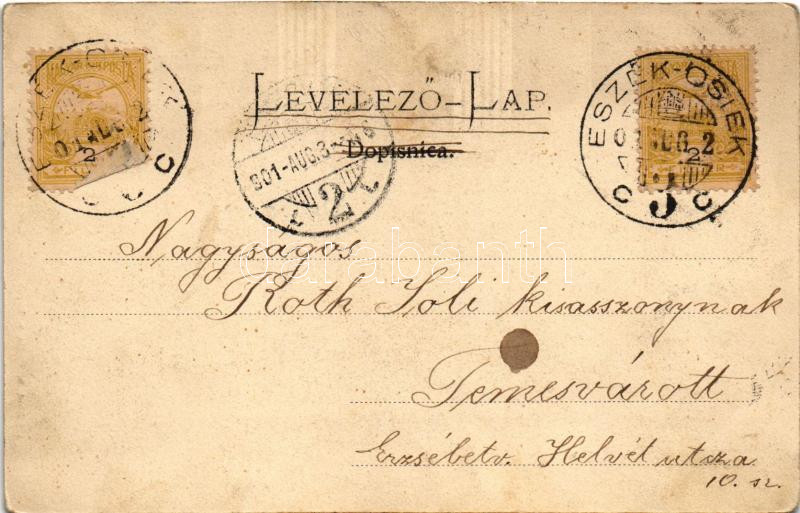 LEVELEZŐ-LAP.
Dopisnica.
ESZÉK-OSIEK
901-AUG.3
2
ESZÉK-OSIEK
2
J
Nagyságos
Roth Joli kisasszonynak
Temesvárott
Erzsébetv. Helvét utcza
10. sz.
darabanth